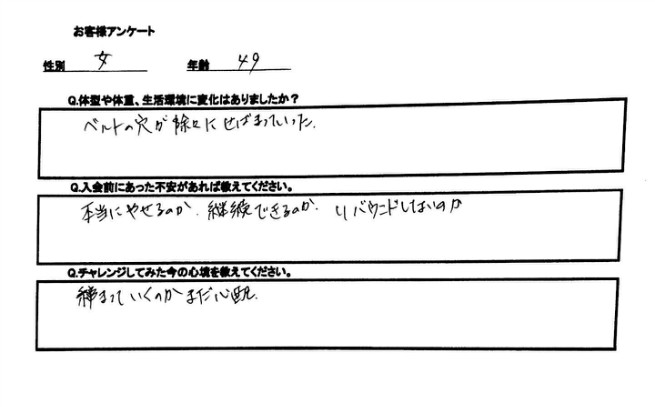 お客様アンケート
性別 女 年齢 49
Q.体型や体重、生活環境に変化はありましたか?
ベルトの穴が徐々にせばまっていった.
Q.入会前にあった不安があれば教えてください。
本当にやせるのか. 継続できるのか. リバウンドしないのか
Q.チャレンジしてみた今の心境を教えてください。
締まっていくのかまだ心配.